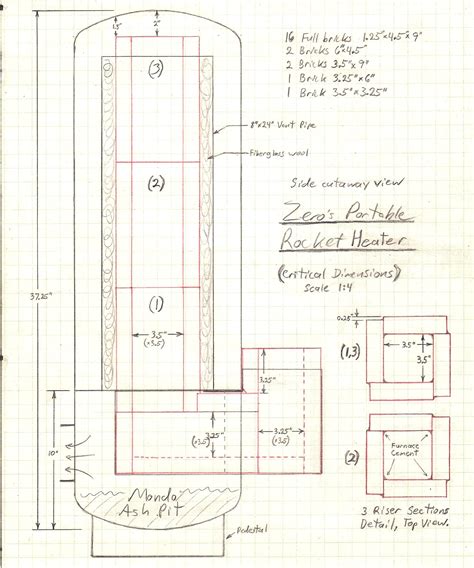 16 Full bricks 1.25"x4.5"x9"
2 Bricks 6"x4.5"
2 Bricks 3.5"x9"
1 Brick 3.25"x6"
1 Brick 3.5"x3.25"
1.5"
2"
(3)
8"x24" Vent Pipe
Fiberglass wool
Side cutaway view
Zero's Portable
Rocket Heater
(Critical Dimensions)
Scale 1:4
(2)
37.25"
(1)
3.5"
(x3.5)
0.25"
(1,3)
3.5"
3.5"
3.25"
3.25"
(x3.5)
3.25"
(x3.5)
10"
(2)
Furnace
Cement
Mondo
Ash Pit
3 Riser Sections
Detail, Top View.
Pedestal